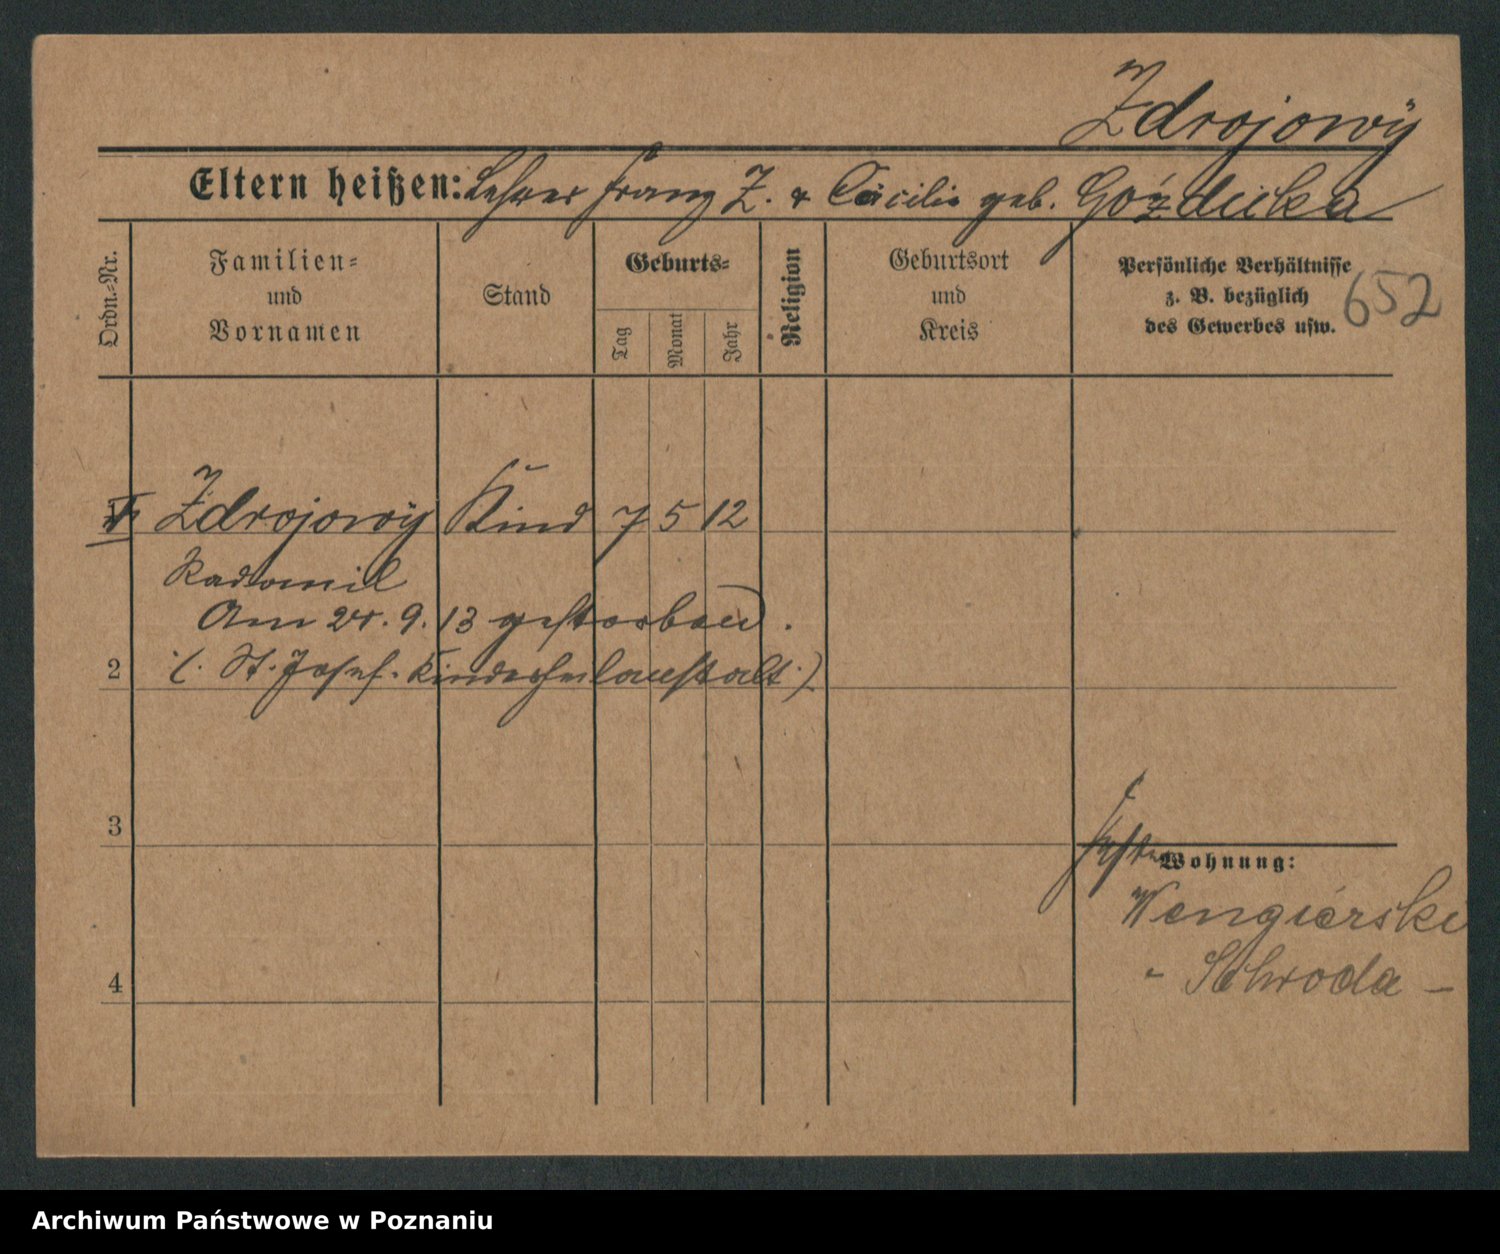 Zdrojowÿ
Eltern heißen: Lehrer Franz Z. & Cäcilie geb. Goździcka
652
Ordn.=Nr.
Familien=
und
Vornamen
Stand
Geburts=
Tag
Monat
Jahr
Religion
Geburtsort
und
Kreis
Persönliche Verhältnisse
z. B. bezüglich
des Gewerbes usw.
1 Zdrojowÿ Kind 7 5 12
Radomil
Am 24. 9. 13 gestorben.
2 (. St. Josef. Kinderheilanstalt.)
3
Wohnung:
Wengierski
- Schroda -
4
Archiwum Państwowe w Poznaniu